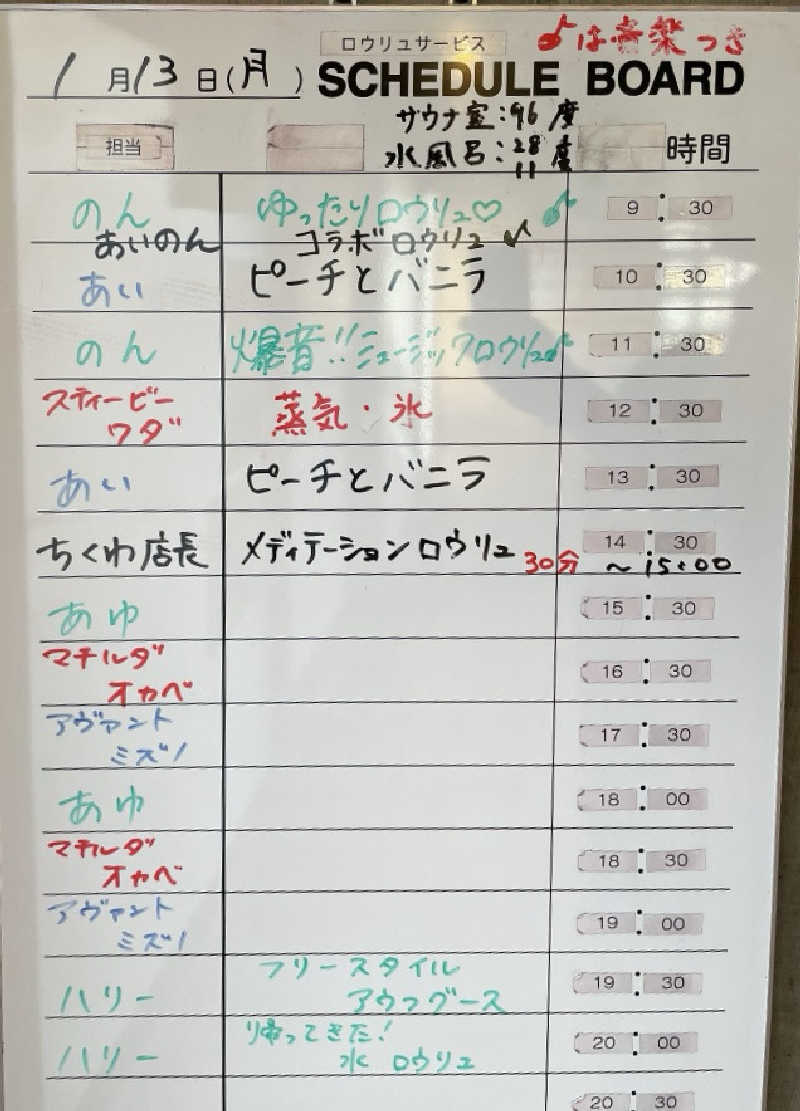 ロウリュサービス
♪は音楽つき
1月13日(月)
SCHEDULE BOARD
サウナ室:96度
水風呂:28度
11
担当
時間
のん ゆったりロウリュ♡ ♪ 9:30
あいのん コラボロウリュ ♪
あい ピーチとバニラ 10:30
のん 爆音!!ミュージックロウリュ♪ 11:30
スティービー
ワダ 蒸気・氷 12:30
あい ピーチとバニラ 13:30
ちくわ店長 メディテーションロウリュ 30分 14:30
~15:00
あゆ 15:30
マチルダ
オカベ 16:30
アヴァント
ミズノ 17:30
あゆ 18:00
マチルダ
オカベ 18:30
アヴァント
ミズノ 19:00
ハリー フリースタイル
アウフグース 19:30
ハリー 帰ってきた!
氷 ロウリュ 20:00
20:30